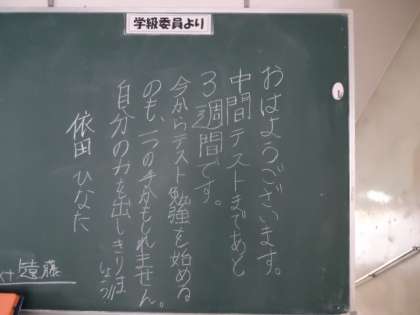 学級委員より
おはようございます。
中間テストまであと
3週間です。
今からテスト勉強を始める
のも、一つの手かもしれません。
自分の力を出しきりましょう!
依田 ひなた
遠藤